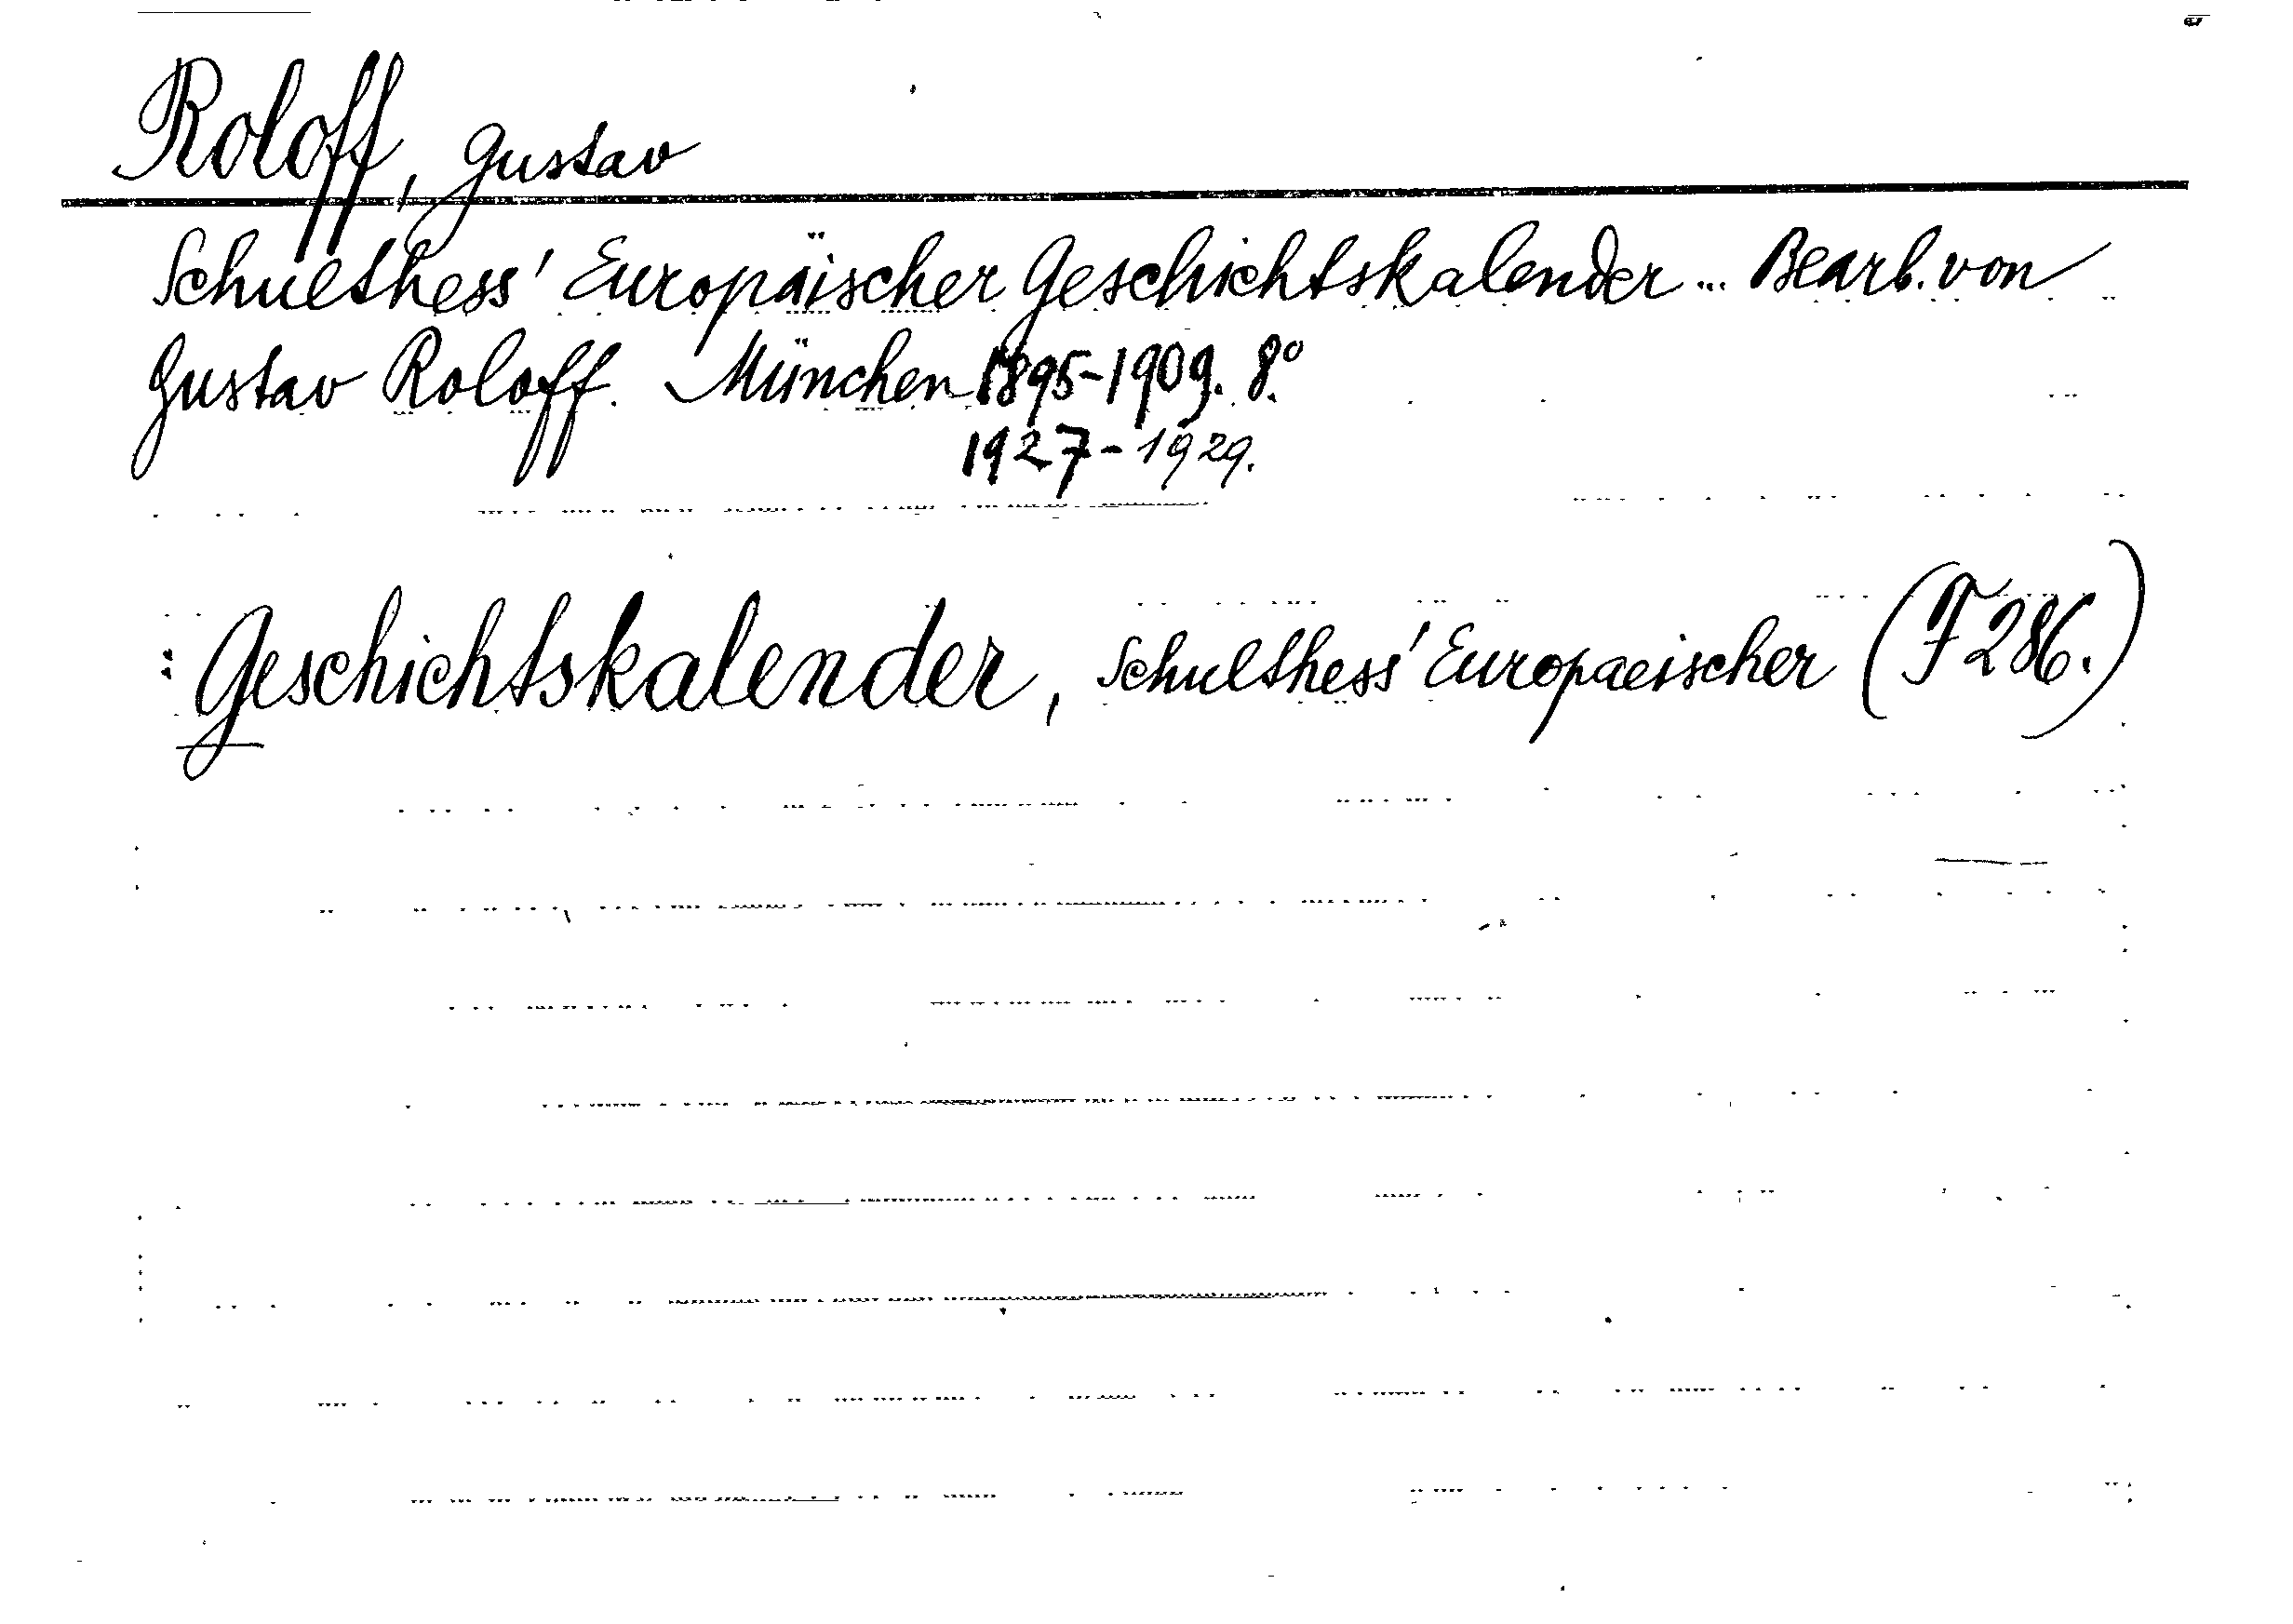 Roloff, Gustav
Schulthess' Europäischer Geschichtskalender... Bearb. von
Gustav Roloff. München 1895-1909. 8°.
1927-1929.
Geschichtskalender, Schulthess' Europaeischer (F 286.)